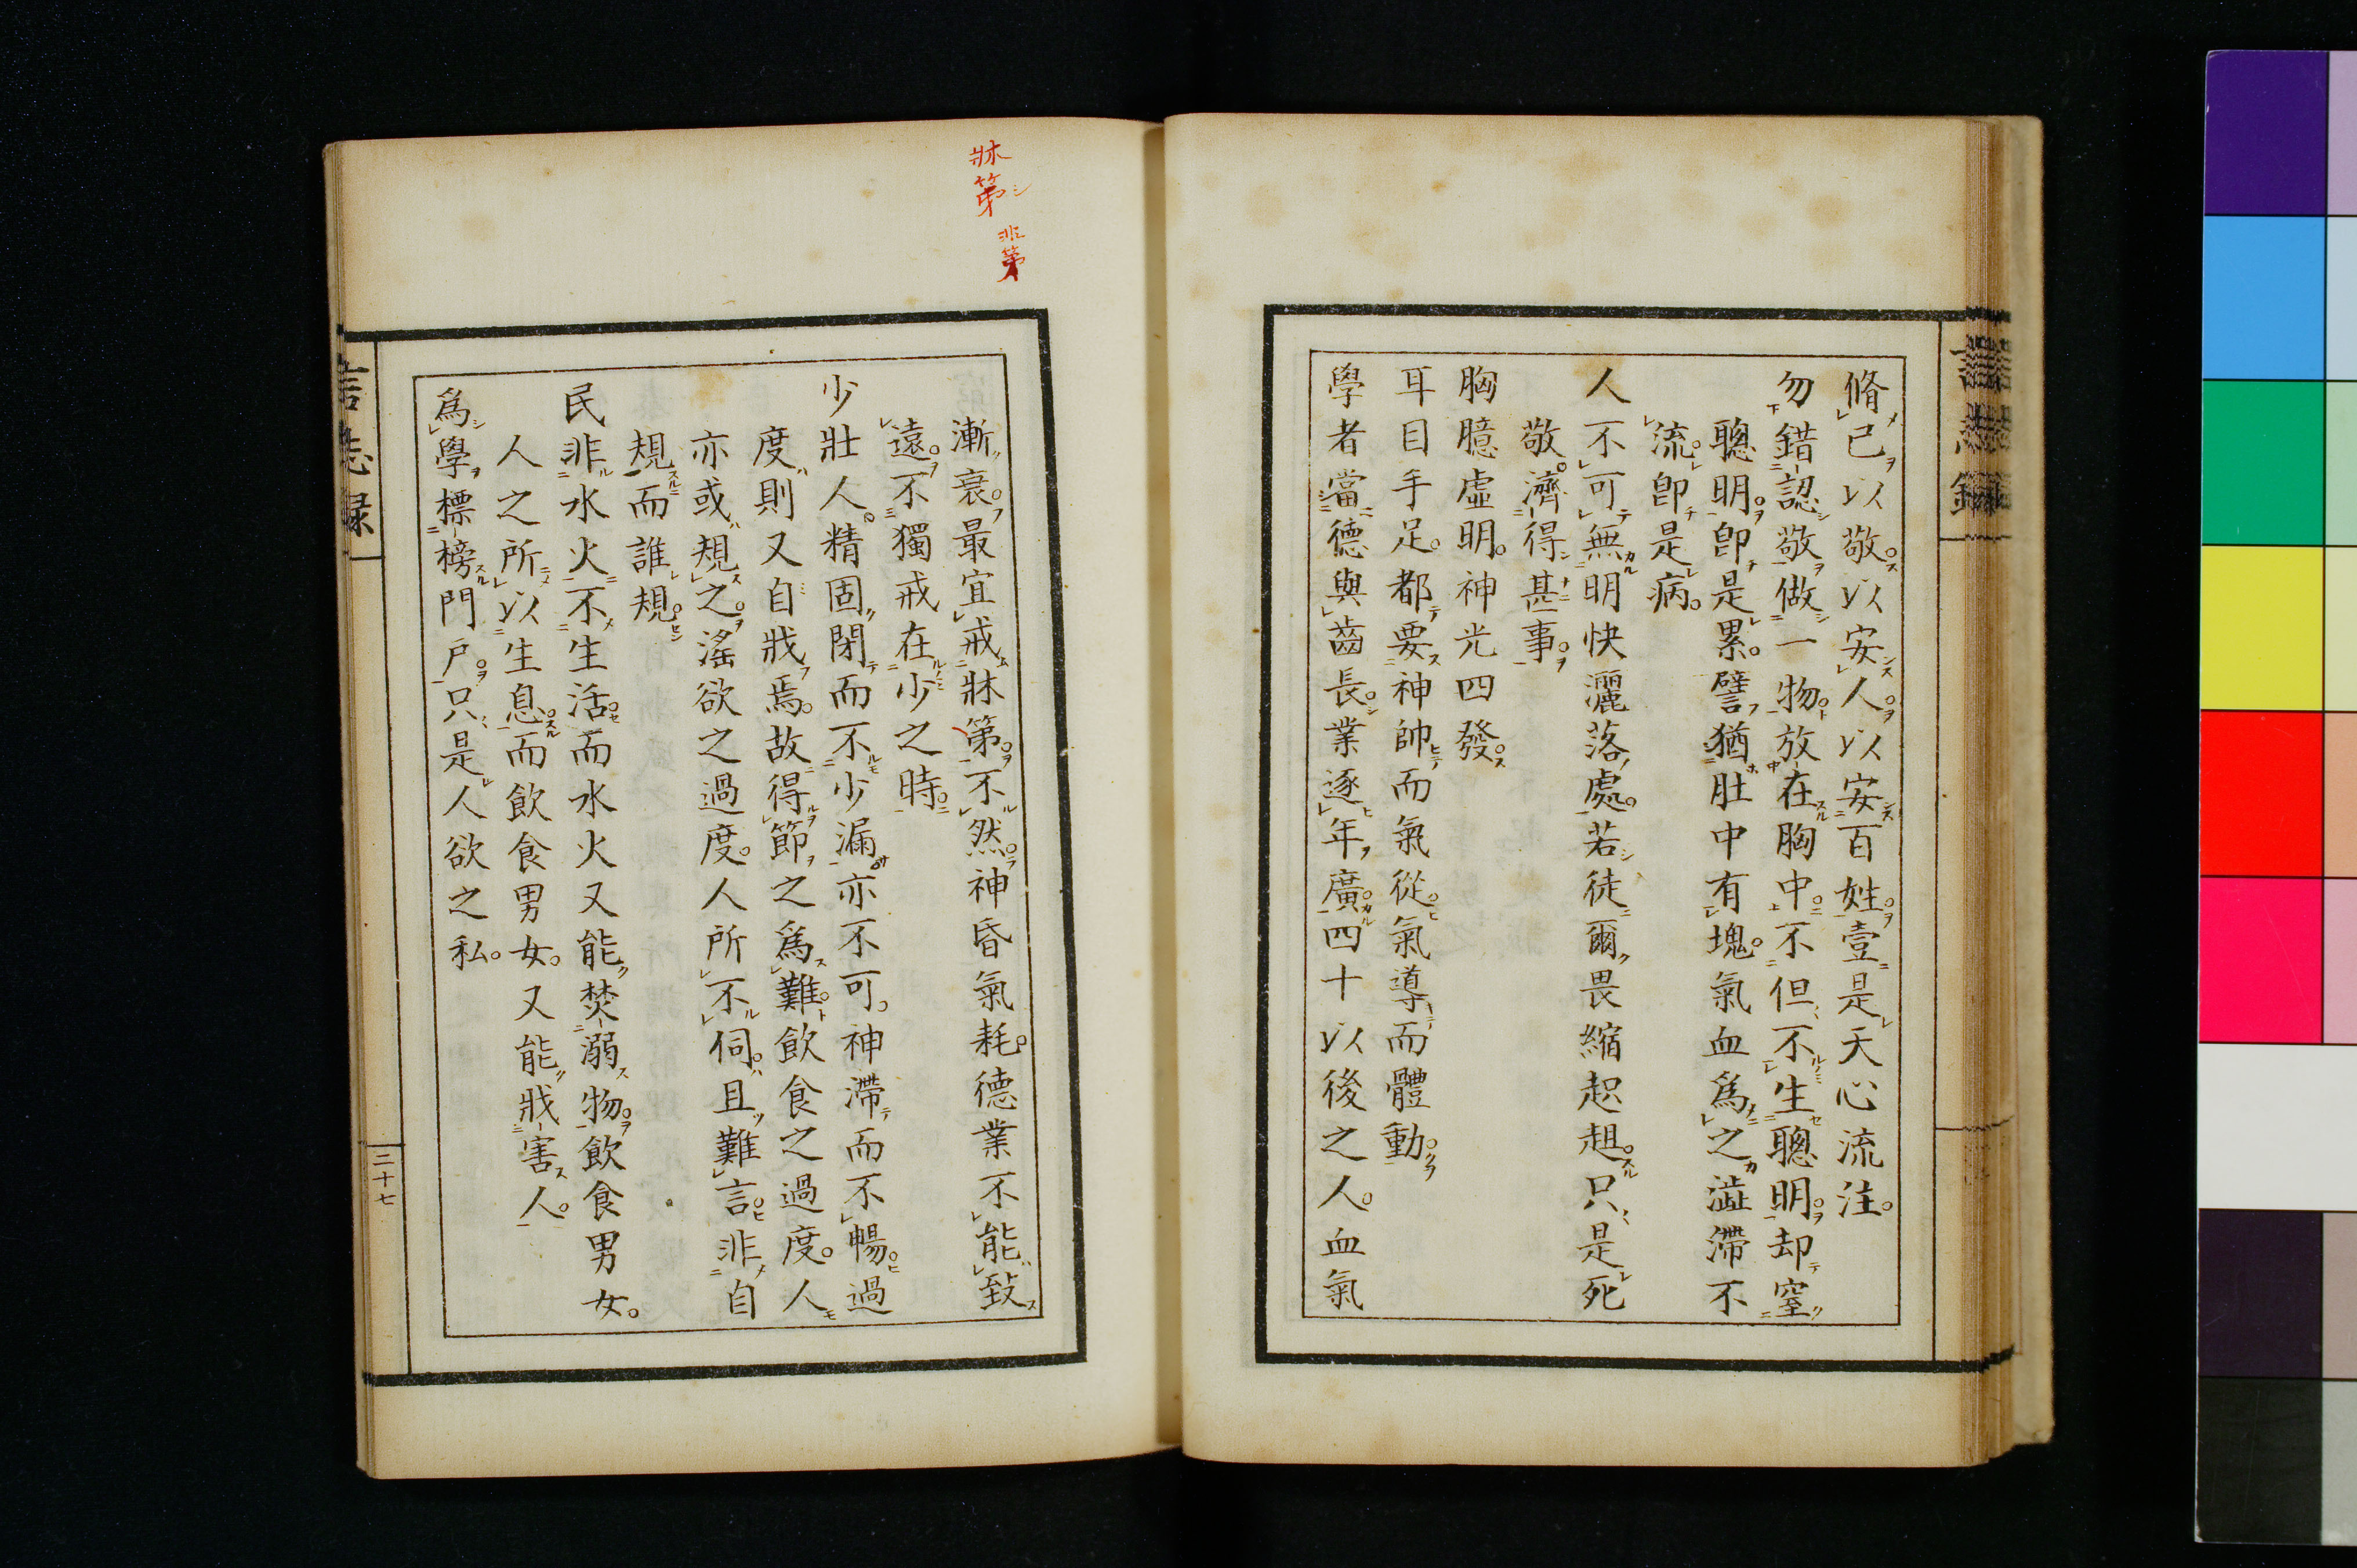 脩己以敬以安人以安百姓壹是天心流注
勿錯認敬做一物放在胸中不但不生聰明却窒
聰明卽是累譬猶肚中有塊氣血爲之澁滯不
流卽是病
人不可無明快灑落處若徒爾畏縮趑趄只是死
敬濟得甚事
胸臆虛明神光四發
耳目手足都要神帥而氣從氣導而體動
學者當德與齒長業逐年廣四十以後之人血氣
漸衰最宜戒牀第不然神昏氣耗德業不能致
遠不獨戒在少之時
少壯人精固閉而不少漏亦不可神滯而不暢過
度則又自戕焉故得節之爲難飲食之過度人
亦或規之滛欲之過度人所不伺且難言非自
規而誰規
民非水火不生活而水火又能焚溺物飲食男女
人之所以生息而飲食男女又能戕害人
爲學標榜門戶只是人欲之私
言志録
二十七
牀第
非第